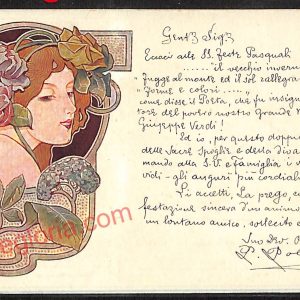 Gent? Sig?
Eccoci alle SS. Feste Pasquali
....... il vecchio inverno
"Fugge al monte ed il sol rallegra
"Forme e colori .......
come disse il Poeta, che fu insign
tore del nostro Grande
Giuseppe Verdi!
Ed io, per questo doppio
delle Sacre Spoglie e desta
mando alla S.V. e famiglia i
vidi - gli auguri più cordiali
Si accetti. La prego,
festazione sincera d'un anim
un lontano amico, sollecito e
Suo Dev.
gloria.com